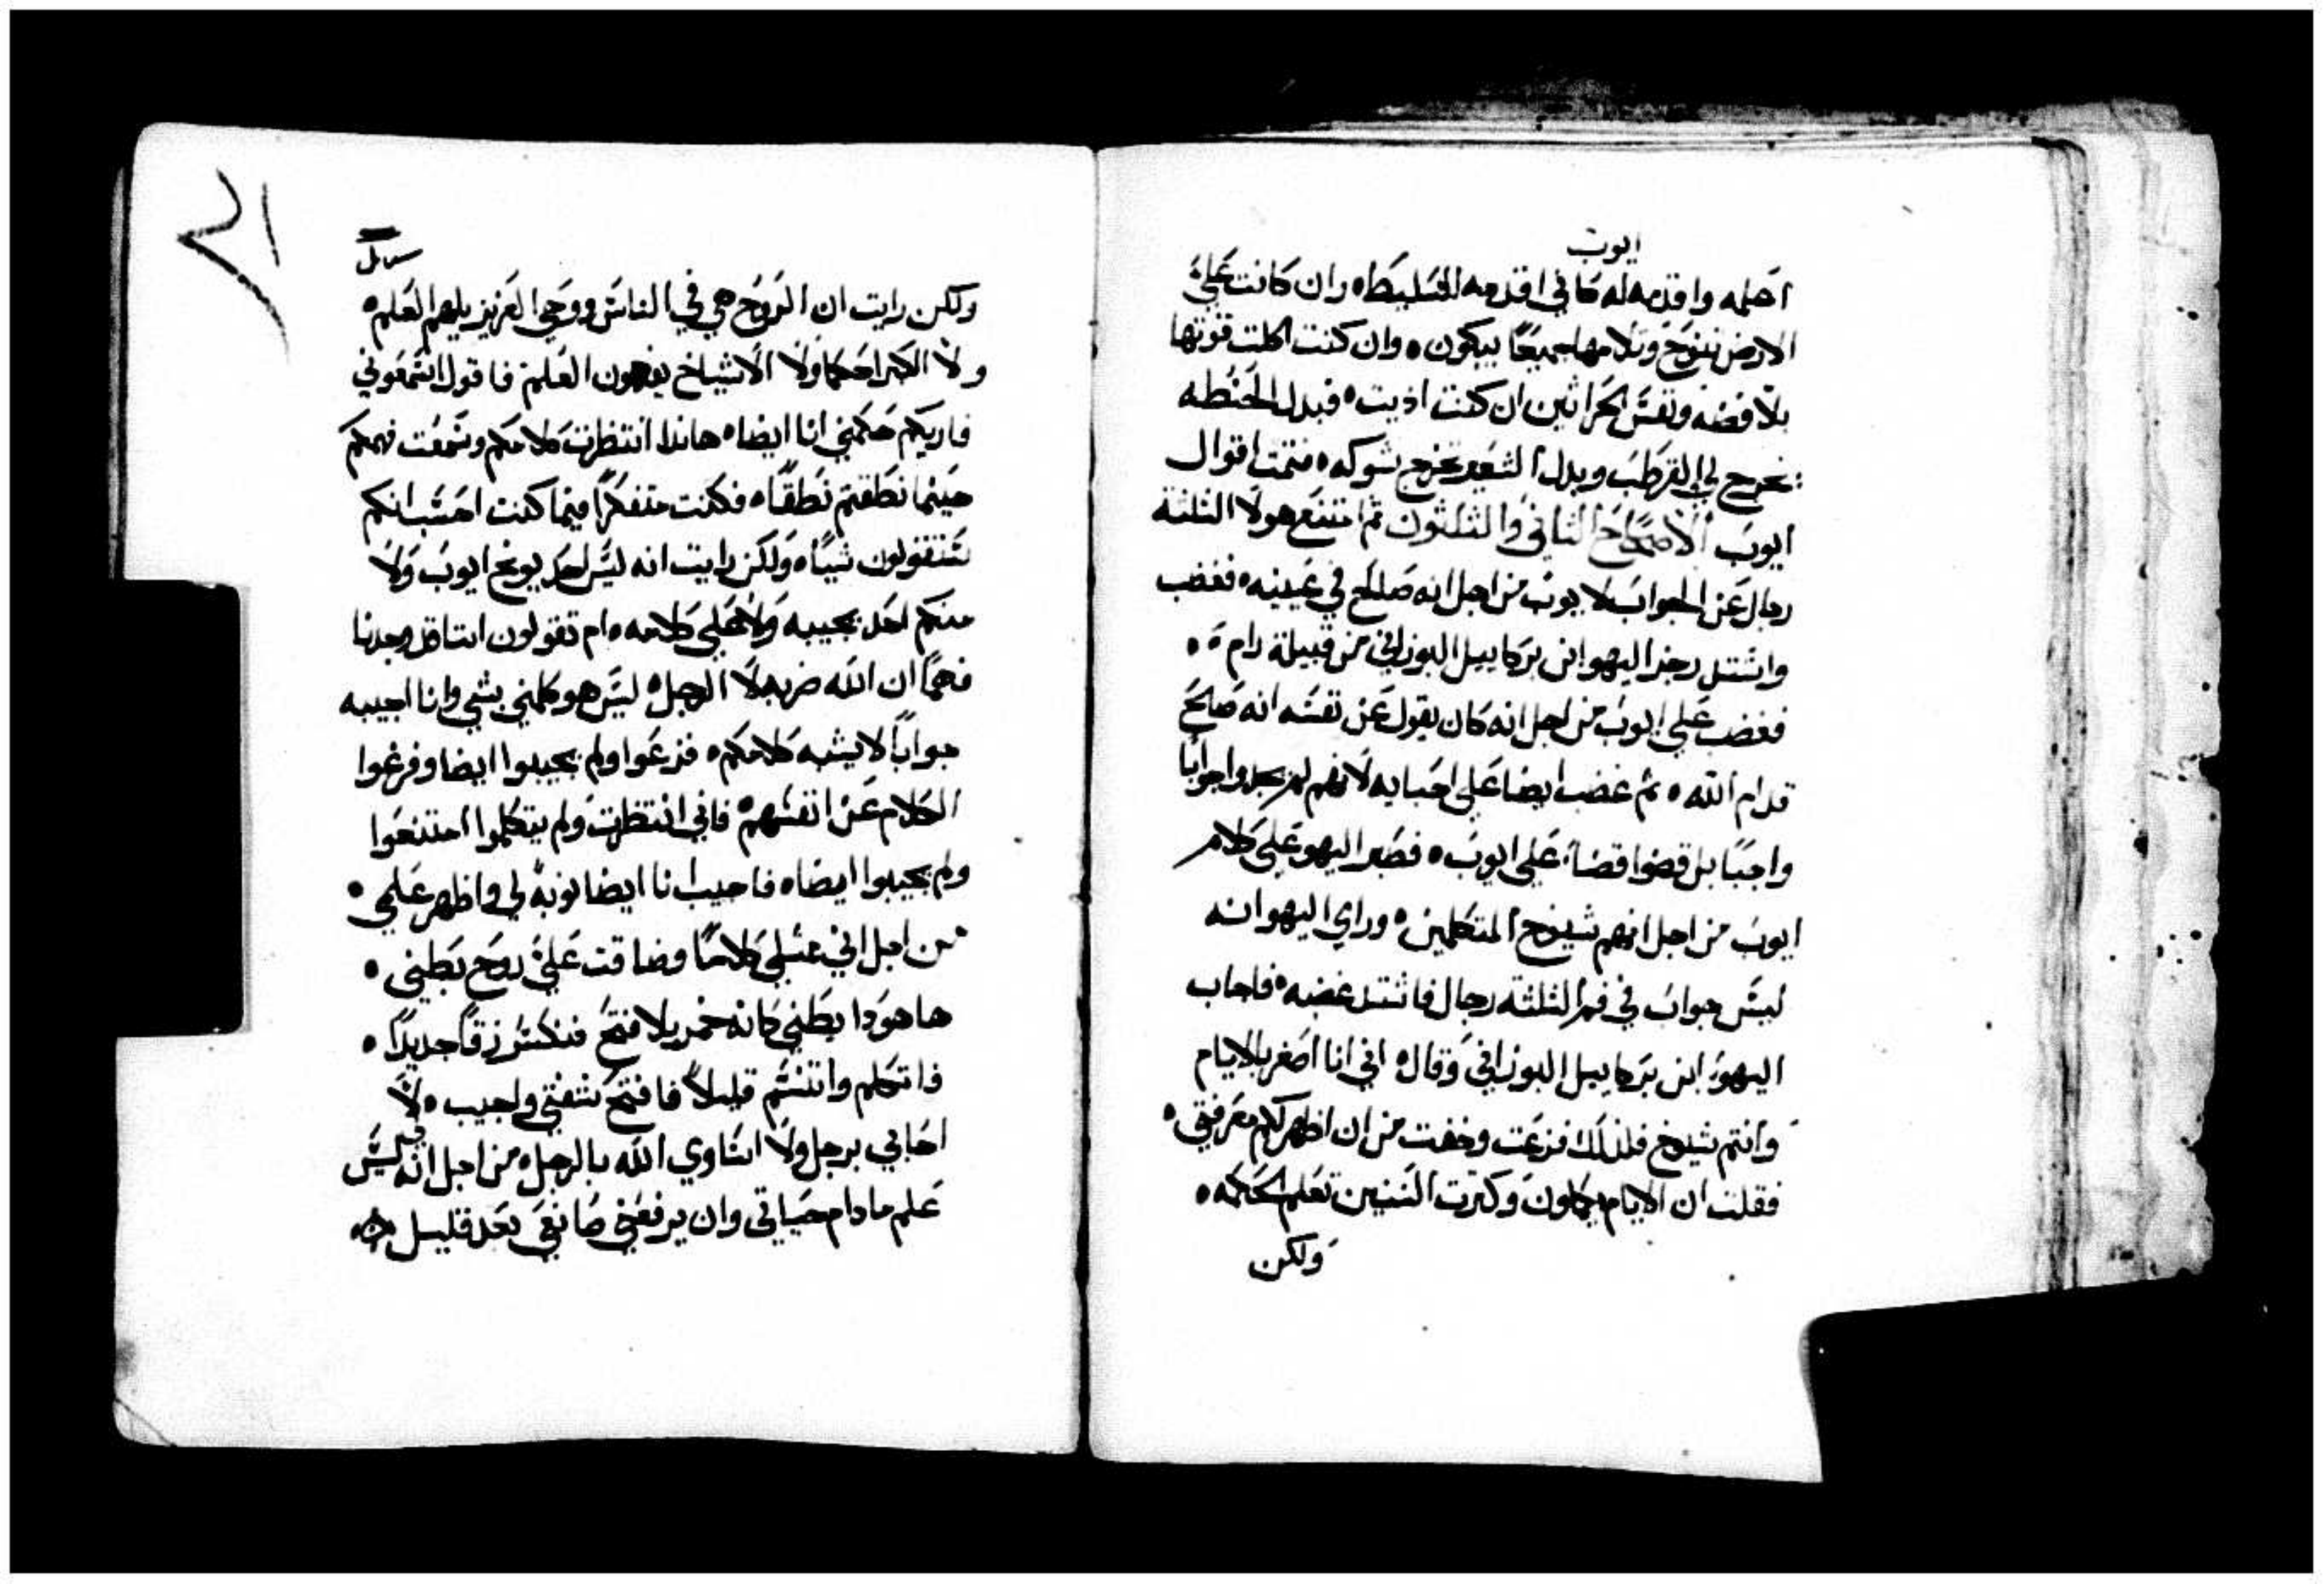 ايوب
احمله واقدمه له كاني اقدمه للمسليطه وان كانت علي
الارض تنوح وتلامها جميعا يبكون ٥ وان كنت اكلت قوتها
بلا فضه ونفس الحراثين ان كنت اذيت ٥ فبدل الحنطه
يخرج لي القرطب وبدل الشعير يخرج شوكه ٥ فتمت اقوال
ايوب الاصحاح الثاني والثلثون ثم امتنع هولا الثلثة
رجال عن الجواب لايوب من اجل انه صالح في عينيه ٥ فغضب
واشتد رجز اليهو ابن بركاييل البوزاني من قبيلة رام ٥ ٥
فغضب علي ايوب من اجل انه كان يقول عن نفسه انه صالح
قدام الله ٥ ثم غضب ايضا علي احبايه لانهم لم يجدوا جوابا
واجبا بل قضوا قضا علي ايوب ٥ فصبر اليهو علي كلام
ايوب من اجل انهم شيوخ المتكلمين ٥ وراي اليهو انه
ليس جواب في فم الثلثة رجال فاشتد غضبه ٥ فاجاب
اليهو ابن بركاييل البوزاني وقال ٥ اني انا اصغر بالايام
وانتم شيوخ فلذلك فزعت وخفت من ان اظهر لكم معرفتي ٥
فقلت ان الايام يتكلون وكثرت السنين تعلم الحكمه ٥
ولكن
٢١
ولكن رايت ان الروح هي في الناس ووحي العزيز يلهم العلم ٥
ولا الكبرا حكما ولا الاشياخ يفهمون العلم فاقول استمعوني
فاريكم حكمتي انا ايضا ٥ هاندا انتظرت كلامكم وسمعت فهمكم
حينما نطقتم نطقا ٥ فكنت متفكرا فيما كنت احسب انكم
ستقولون شيا ٥ ولكن رايت انه ليس احد يوبخ ايوب ولا
منكم احد يجيبه ولا علي كلامه ٥ ام تقولون اننا قد وجدنا
فهما ان الله ضربه لا الرجل ٥ ليس هو كلمني بشي وانا اجيبه
جوابا لا يشبه كلامكم ٥ فزعوا ولم يجيبوا ايضا وفرغوا
الكلام عن انفسهم ٥ فاني انتظرت ولم يتكلموا امتنعوا
ولم يجيبوا ايضا ٥ فاجيب انا ايضا نوبة لي واظهر علمي ٥
من اجل اني ممتلي كلاما وضاقت علي روح بطني ٥
ها هوذا بطني كانه خمر بلا فتح فتكسر زقا جديدا ٥
فاتكلم واتنسم قليلا فافتح شفتي واجيب ٥ لا
احابي برجل ولا اساوي الله بالرجل ٥ من اجل انه ليس لي
علم ما دام حياتي وان يرفعني صانعي بعد قليل ٥